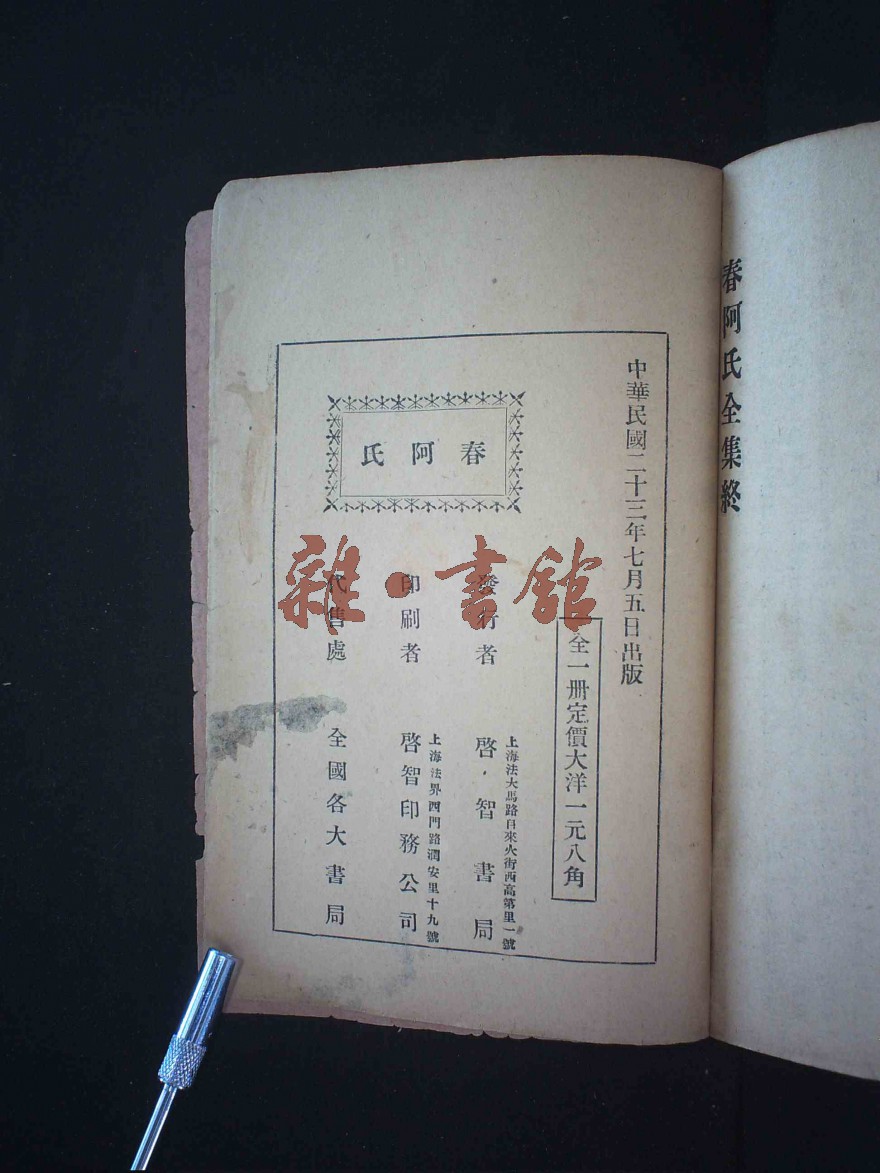 春阿氏全集終
中華民國二十三年七月五日出版
全一冊定價大洋一元八角
春阿氏
上海法大馬路自來火街西高第里一號
發行者 啓智書局
上海法界西門路潤安里十九號
印刷者 啓智印務公司
代售處 全國各大書局
雜·書館